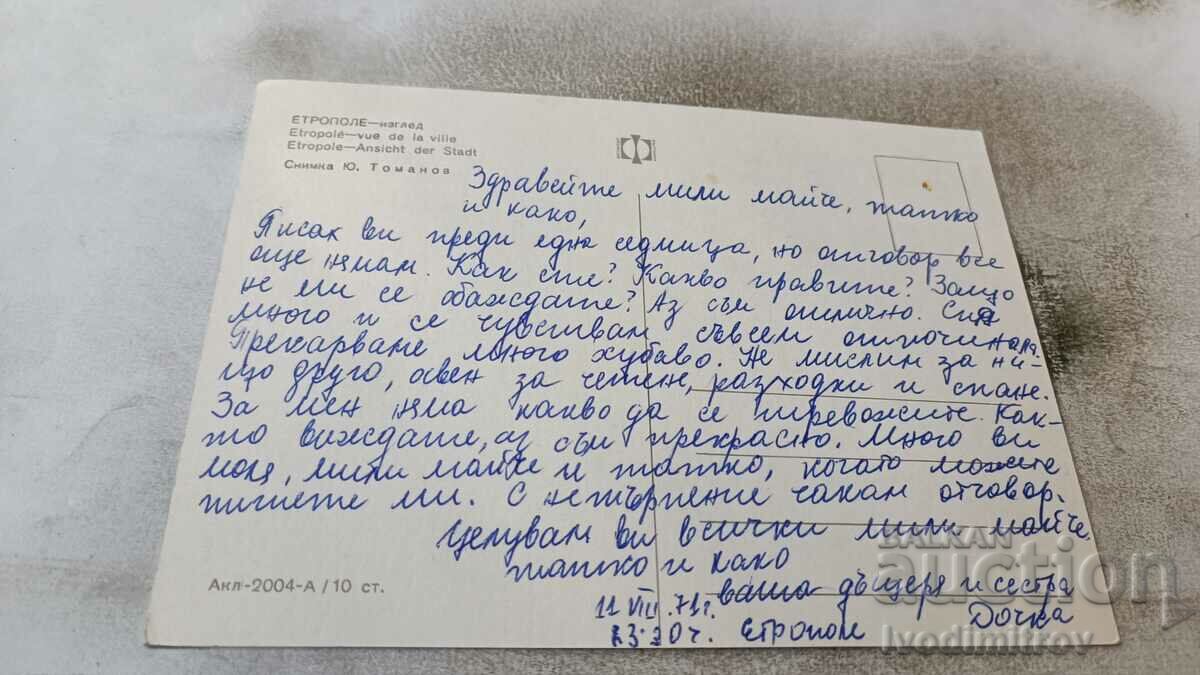 ЕТРОПОЛЕ—изглед
Etropole—vue de la ville
Etropole—Ansicht der Stadt
Снимка Ю. Томанов
Здравейте мили майче, татко
и како,
Писах ви преди една седмица, но отговор все
още нямам. Как сте? Какво правите? Защо
не ми се обаждате? Аз съм отлично. Спя
много и се чувствам съвсем отпочинала.
Прекарваме много хубаво. Не мислим за ни-
що друго, освен за четене, разходки и спане.
За мен няма какво да се тревожите. Как-
то виждате, аз съм прекрасно. Много ви
моля, мили майче и татко, когато можете
пишете ми. С нетърпение чакам отговор.
Целувам ви всички мили майче,
татко и како
ваша дъщеря и сестра
11 VIII. 71 г. Дочка
23:20 ч. Етрополе
Акл-2004-А / 10 ст.
BALKAN
auction
Ivodimitrov